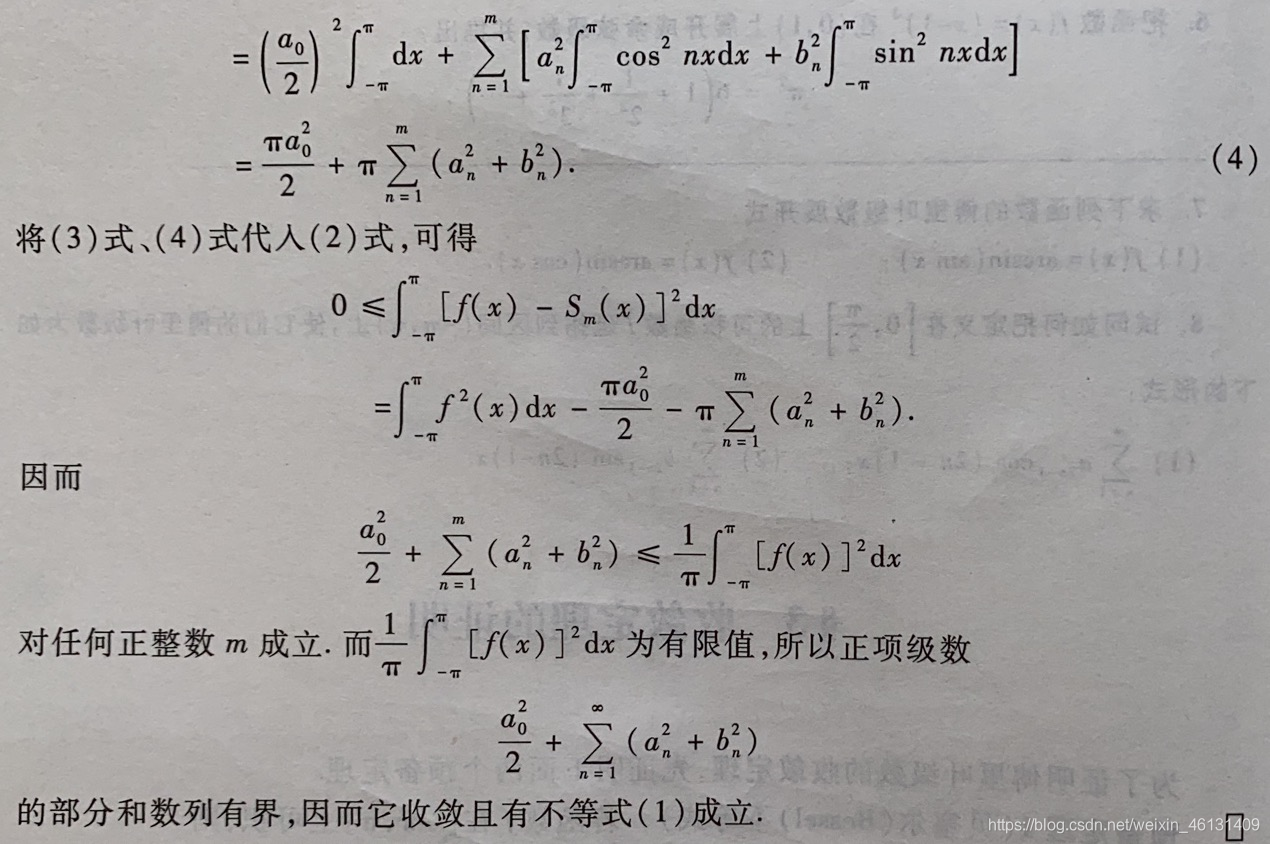 = (a₀/2)² ∫_{-π}^{π} dx + ∑_{n=1}^{m} [a_n² ∫_{-π}^{π} cos² nxdx + b_n² ∫_{-π}^{π} sin² nxdx]
= πa₀²/2 + π ∑_{n=1}^{m} (a_n² + b_n²). (4)
将(3)式、(4)式代入(2)式,可得
0 ≤ ∫_{-π}^{π} [f(x) - S_m(x)]² dx
= ∫_{-π}^{π} f²(x)dx - πa₀²/2 - π ∑_{n=1}^{m} (a_n² + b_n²).
因而
a₀²/2 + ∑_{n=1}^{m} (a_n² + b_n²) ≤ 1/π ∫_{-π}^{π} [f(x)]² dx
对任何正整数 m 成立. 而 1/π ∫_{-π}^{π} [f(x)]² dx 为有限值,所以正项级数
a₀²/2 + ∑_{n=1}^{∞} (a_n² + b_n²)
的部分和数列有界,因而它收敛且有不等式(1)成立. □
https://blog.csdn.net/weixin_46131409